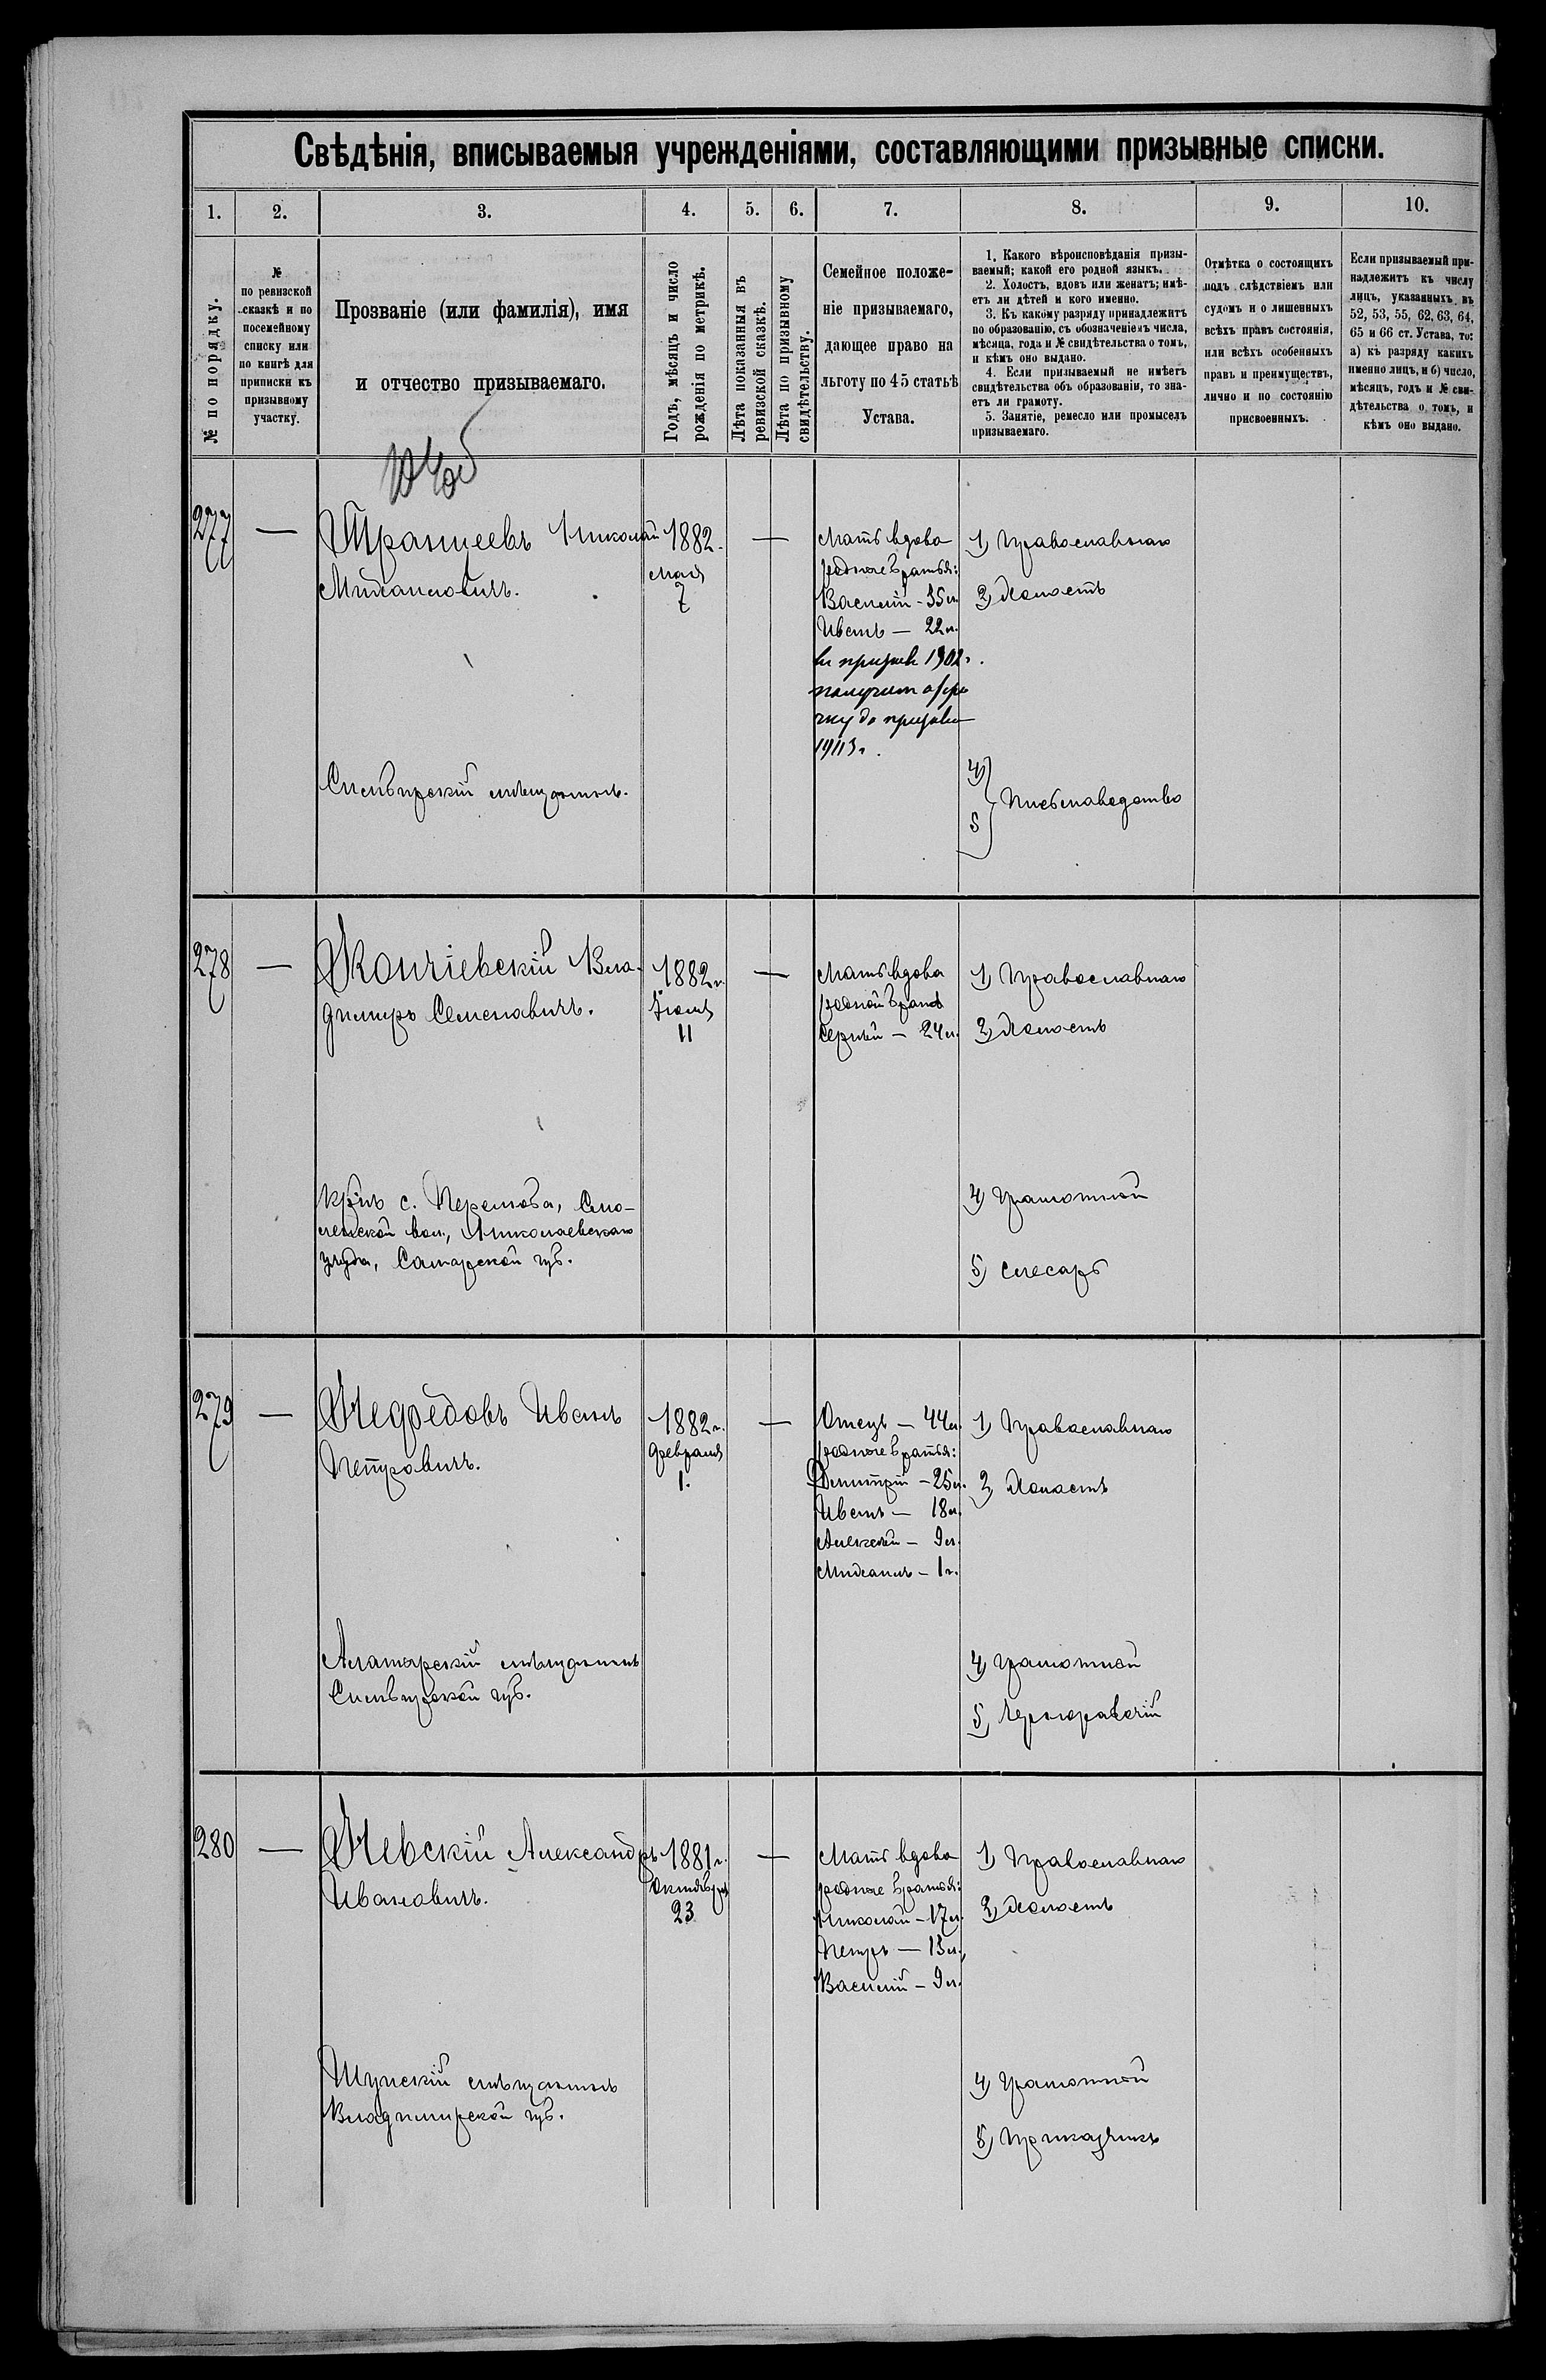 Свѣдѣнія, вписываемыя учрежденіями, составляющими призывные списки.
1.
2.
3.
4.
5.
6.
7.
8.
9.
10.
№ по порядку.
№
по ревизской
сказкѣ и по
посемейному
списку или
по книгѣ для
приписки къ
призывному
участку.
Прозваніе (или фамилія), имя
и отчество призываемаго.
Годъ, мѣсяцъ и число
рожденія по метрикѣ.
Лѣта показанныя въ
ревизской сказкѣ.
Лѣта по призывному
свидѣтельству.
Семейное положе-
ніе призываемаго,
дающее право на
льготу по 45 статьѣ
Устава.
1. Какого вѣроисповѣданія призы-
ваемый; какой его родной языкъ.
2. Холостъ, вдовъ или женатъ; имѣ-
етъ ли дѣтей и кого именно.
3. Къ какому разряду принадлежитъ
по образованію, съ обозначеніемъ числа,
мѣсяца, года и № свидѣтельства о томъ,
и кѣмъ оно выдано.
4. Если призываемый не имѣетъ
свидѣтельства объ образованіи, то зна-
етъ ли грамоту.
5. Занятіе, ремесло или промыселъ
призываемаго.
Отмѣтка о состоящихъ
подъ слѣдствіемъ или
судомъ и о лишенныхъ
всѣхъ правъ состоянія,
или всѣхъ особенныхъ
правъ и преимуществъ,
лично и по состоянію
присвоенныхъ.
Если призываемый при-
надлежитъ къ числу
лицъ, указанныхъ въ
52, 53, 55, 62, 63, 64,
65 и 66 ст. Устава, то:
а) къ разряду какихъ
именно лицъ, и б) число,
мѣсяцъ, годъ и № сви-
дѣтельства о томъ, и
кѣмъ оно выдано.
277 — Николай 1882 — Мать вдова 1) Православнаго
Михаиловичъ. Мая родные братья:
7 Василій - 35 л. 2) Холостъ
Иванъ — 22 л.
въ призывъ 1902 г.
получилъ отсро
чку до призыва
Симбирскій мѣщанинъ.
4)
5 Письмоводство
278 — Вла- 1882 г. — Мать вдова 1) Православнаго
диміръ Семеновичъ. Іюля родной братъ
11 Сергѣй — 24 л. 2) Холостъ
Кр-нъ с. Перелюба, Смо-
ленской вол., Николаевскаго
уѣзда, Самарской губ.
4) Грамотный
5) Слесарь
279 — Нефедовъ Иванъ 1882 г. — Отецъ — 44 л. 1) Православнаго
Петровичъ. Февраля родные братья:
1. Димитрій — 25 л. 2) Холостъ
Иванъ — 18 л.
Алексѣй — 9 л.
Михаилъ — 1 г.
Алатырскій мѣщанинъ
Симбирской губ.
4) Грамотный
5) Чернорабочій
280 — Невскій Александръ 1881 г. — Мать вдова 1) Православнаго
Ивановичъ. Октября родные братья:
23 Николай — 17 л. 2) Холостъ
Петръ — 13 л.
Василій — 9 л.
Шуйскій мѣщанинъ
Владимирской губ.
4) Грамотный
5) Приказчикъ